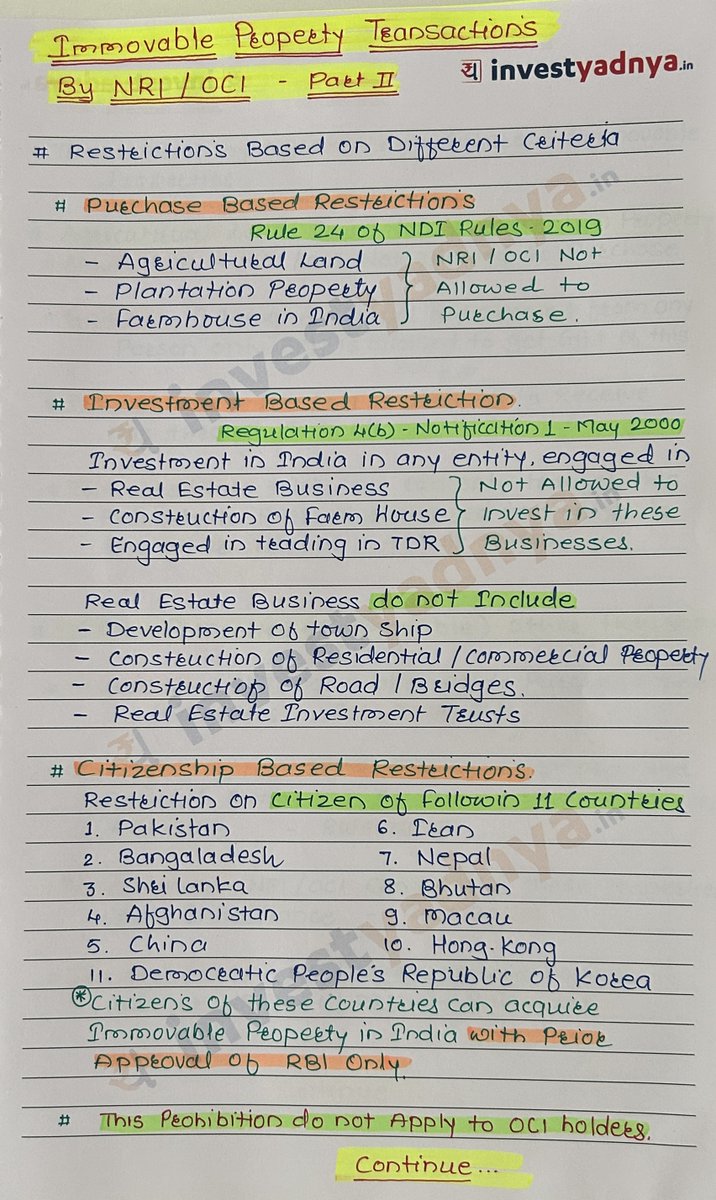 Immovable Property Transaction's
By NRI / OCI - Part II
य investyadnya.in
# Restriction's Based on Different Criteria
# Purchase Based Restriction's
Rule 24 of NDI Rules - 2019
- Agricultural Land } NRI / OCI Not
- Plantation Property } Allowed to
- Farmhouse in India } Purchase.
# Investment Based Restriction.
Regulation 4(b) - Notification 1 - May 2000
Investment in India in any entity, engaged in
- Real Estate Business } Not Allowed to
- Construction of Farm House } Invest in these
- Engaged in trading in TDR } Businesses.
Real Estate Business do not Include
- Development of town ship
- Construction of Residential / Commercial Property
- Construction of Road / Bridges.
- Real Estate Investment Trusts
# Citizenship Based Restriction's.
Restriction on Citizen of Followin 11 Countries
1. Pakistan 6. Iran
2. Bangaladesh 7. Nepal
3. Shri Lanka 8. Bhutan
4. Afghanistan 9. Macau
5. China 10. Hong-Kong
11. Democratic People's Republic of Korea
* Citizen's of these Countries can acquire
Immovable Property in India with Prior
Approval of RBI Only.
# This Prohibition do not Apply to OCI holders.
Continue...